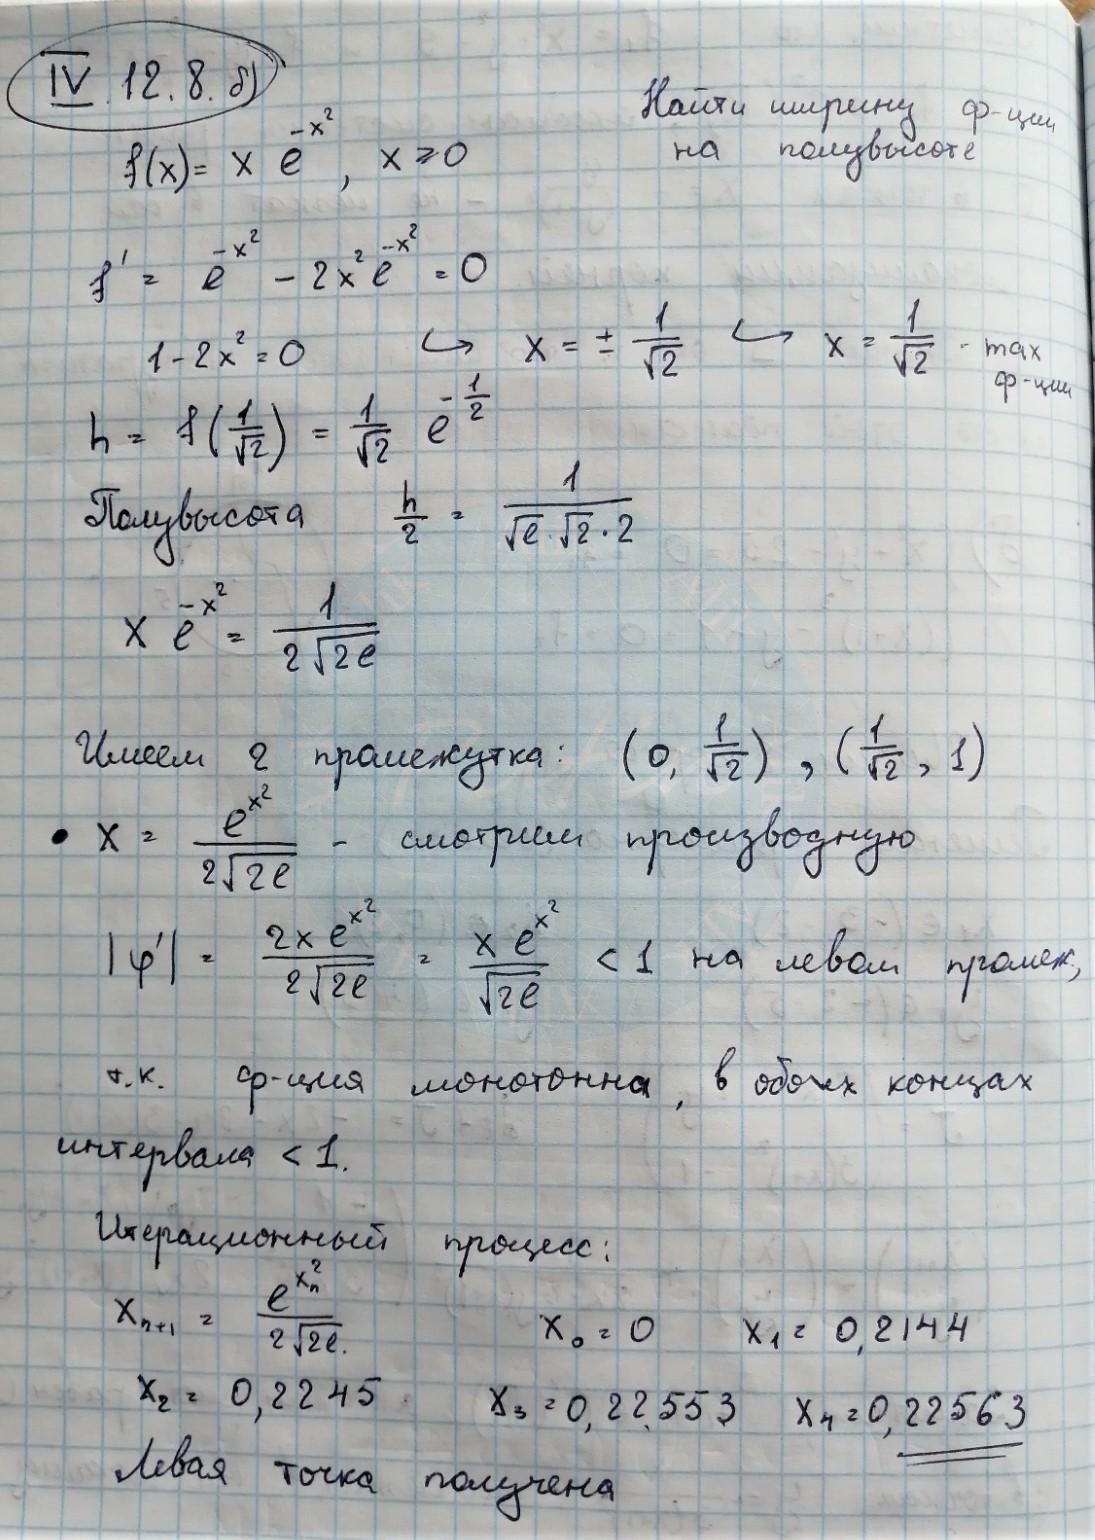 IV.12.8.б)
Найти ширину ф-ции
на полувысоте
f(x) = x e^{-x^2}, x ≥ 0
f' = e^{-x^2} - 2x^2 e^{-x^2} = 0
1 - 2x^2 = 0 ↪ x = ± 1/√2 ↪ x = 1/√2 - max
ф-ции
h = f(1/√2) = 1/√2 e^{-1/2}
Полувысота h/2 = 1/(√e·√2·2)
x e^{-x^2} = 1/(2√2e)
Имеем 2 промежутка: (0, 1/√2), (1/√2, 1)
• x = e^{x^2}/(2√2e) - смотрим производную
|φ'| = 2x e^{x^2}/(2√2e) = x e^{x^2}/√2e < 1 на левом промеж,
т.к. ф-ция монотонна, в обоих концах
интервала < 1.
Итерационный процесс:
x_{n+1} = e^{x_n^2}/(2√2e). x_0 = 0 x_1 = 0,2144
x_2 = 0,2245 x_3 = 0,22553 x_4 = 0,22563
Левая точка получена